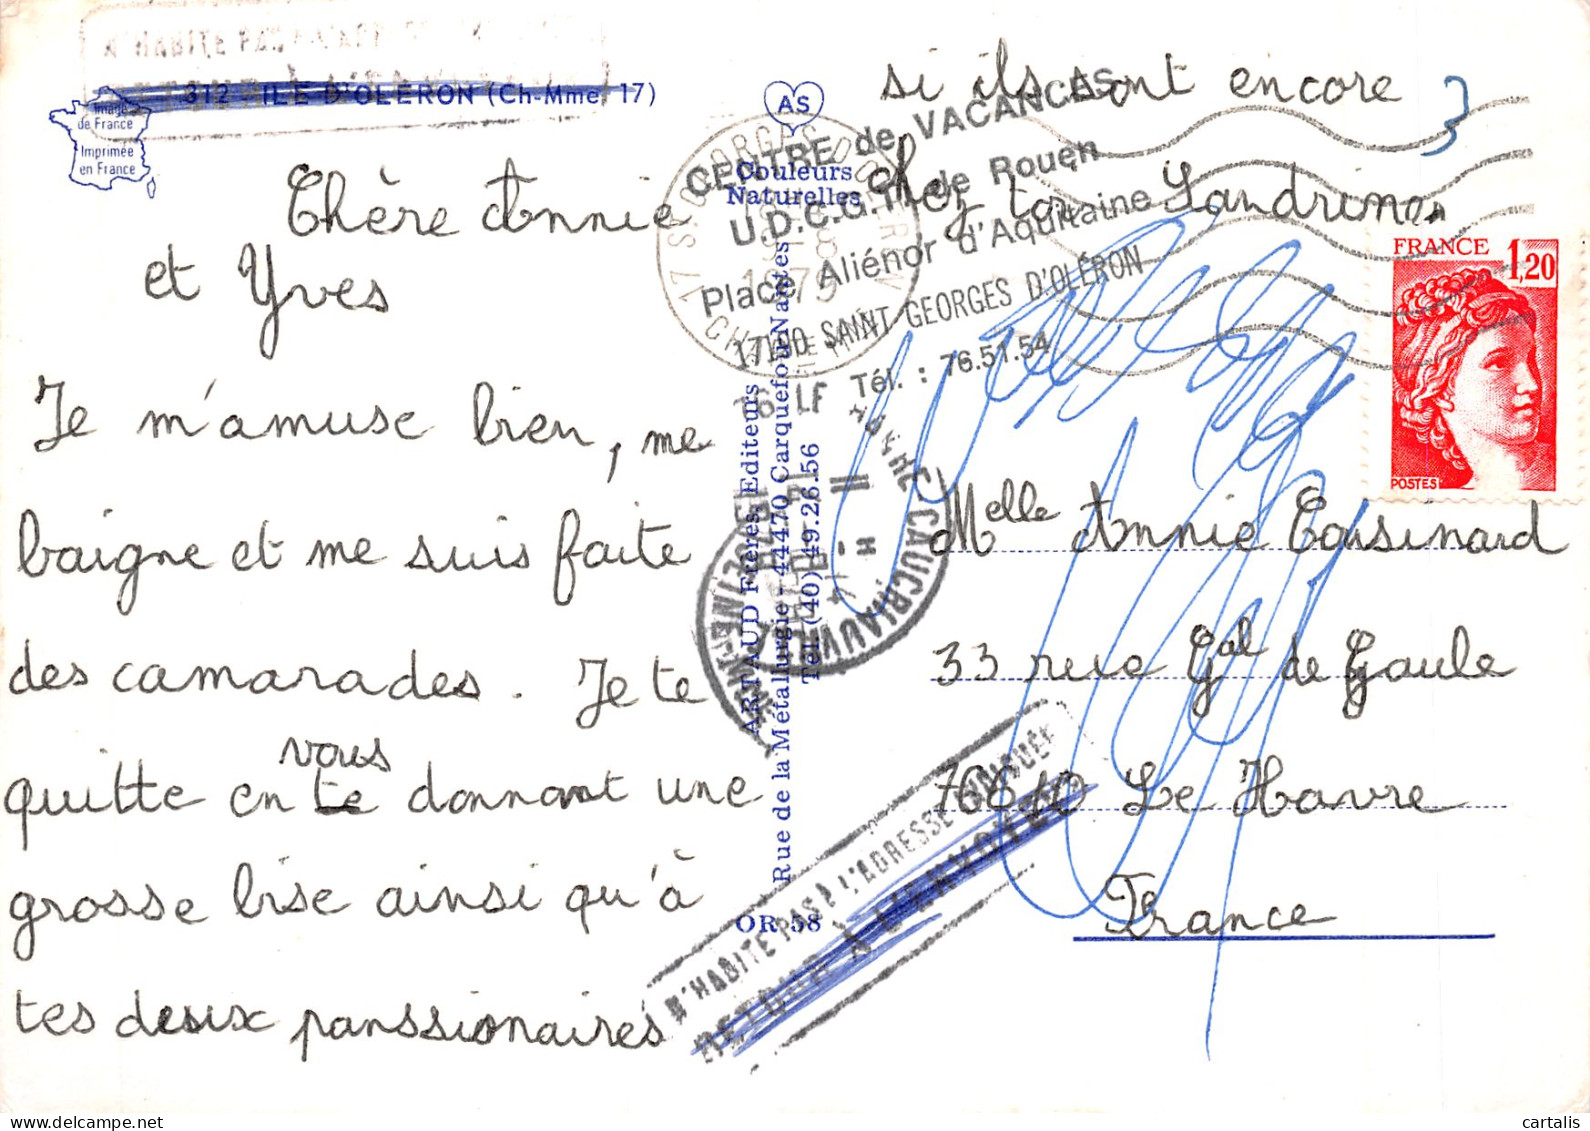 N'HABITE PAS
312 - ILE D'OLÉRON (Ch-Mme, 17)
Image
de France
Imprimée
en France
AS
Couleurs
Naturelles
Chère Annie
et Yves
Je m'amuse bien, me
baigne et me suis faite
des camarades. Je te
vous
quitte en te donnant une
grosse bise ainsi qu'à
tes deux panssionaires
si ils sont encore
chez toi. Sandrine
CENTRE de VACANCES
U.D.C.G.T. de Rouen
Place Aliénor d'Aquitaine
17190 SAINT GEORGES D'OLÉRON
Tél. : 76.51.54
17 ST GEORGES D'OLERON
1979
ARTAUD Frères, Editeurs
Rue de la Métallurgie - 44470 Carquefou-Nantes
Tél. (40) 49.26.56
OR 58
HAVRE-CAUCRIAUVILLE
N'HABITE PAS À L'ADRESSE INDIQUÉE
RETOUR À L'ENVOYEUR
FRANCE 1,20
POSTES
Melle Annie Corsinard
33 rue Gal de Gaule
76610 Le Havre
France
cartalis
delcampe.net